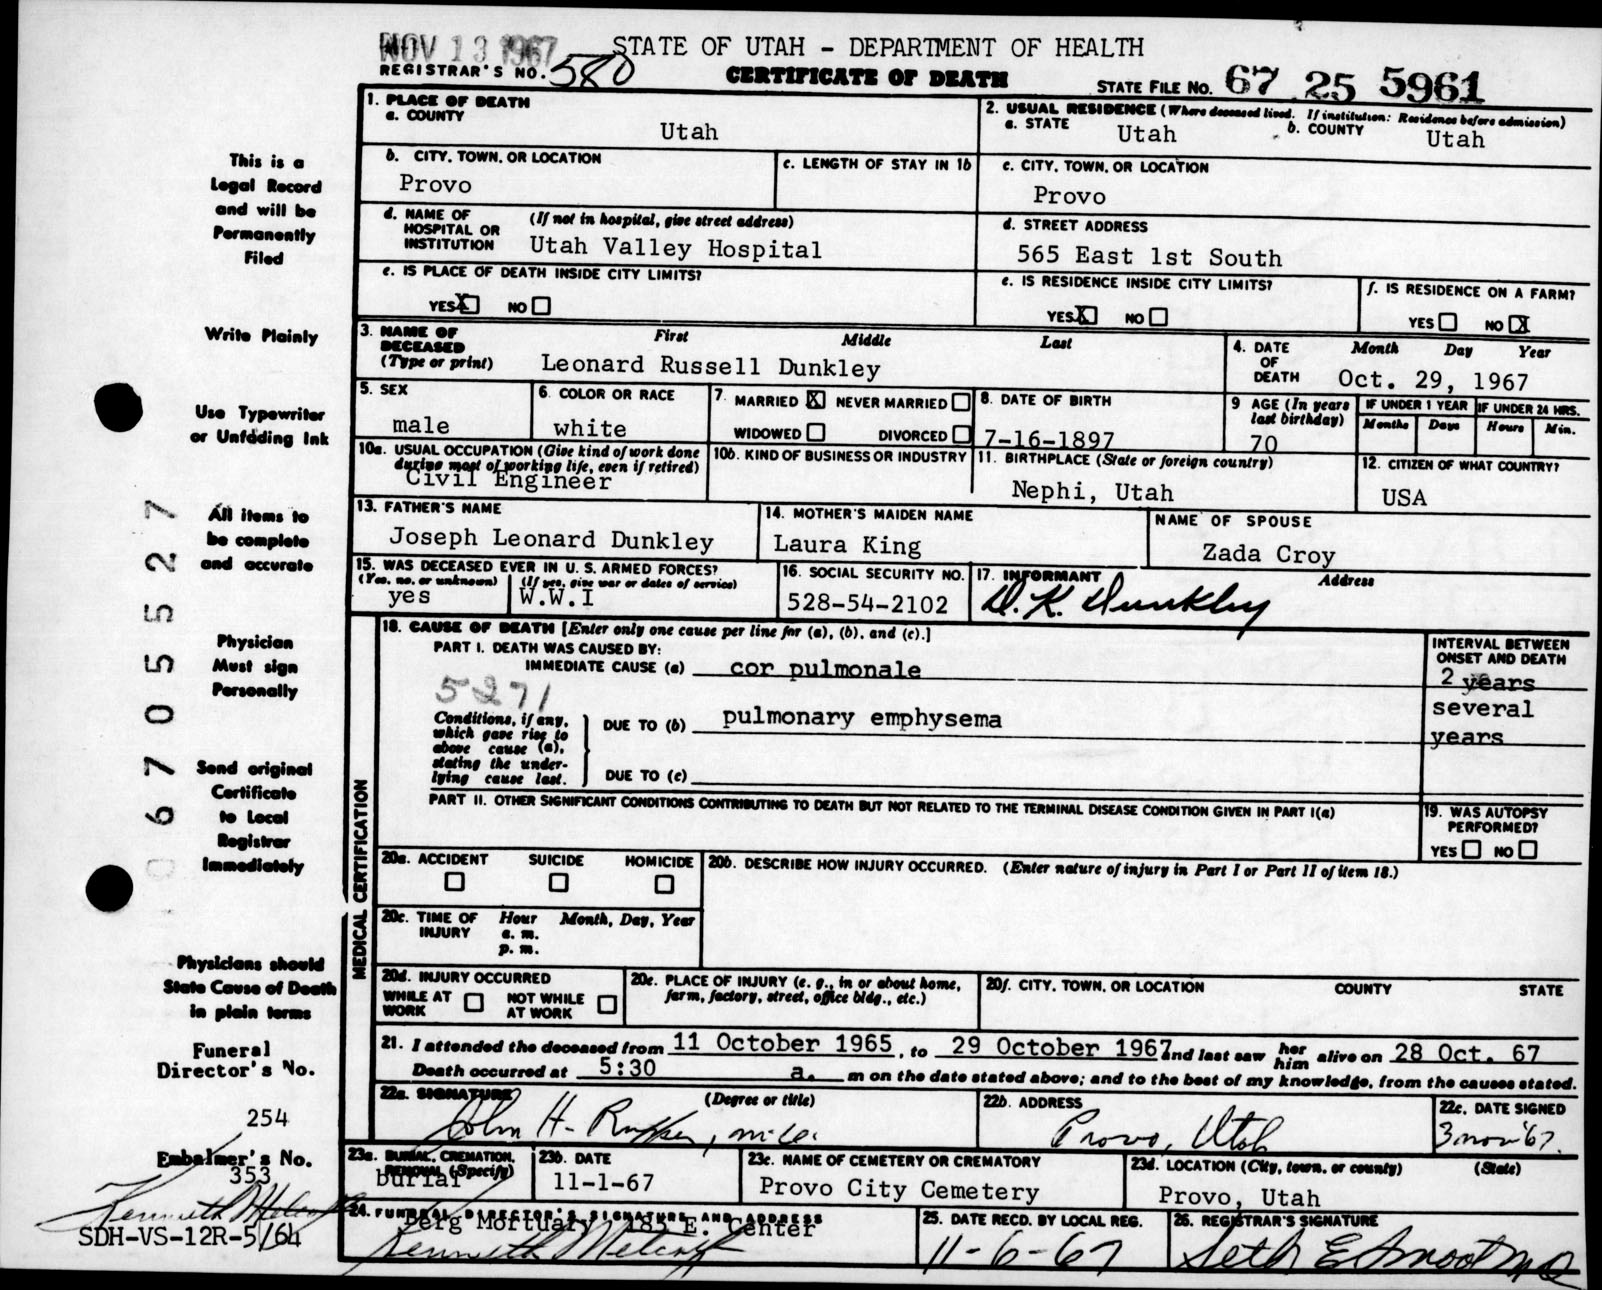 NOV 13 1967
STATE OF UTAH - DEPARTMENT OF HEALTH
REGISTRAR'S NO. 580
CERTIFICATE OF DEATH
STATE FILE NO. 67 25 5961
This is a
Legal Record
and will be
Permanently
Filed
Write Plainly
Use Typewriter
or Unfading Ink
All items to
be complete
and accurate
Physician
Must sign
Personally
Send original
Certificate
to Local
Registrar
Immediately
Physicians should
State Cause of Death
in plain terms
Funeral
Director's No.
254
Embalmer's No.
353
Kenneth Metcalf
SDH-VS-12R-5/64
0670055527
1. PLACE OF DEATH
a. COUNTY
Utah
2. USUAL RESIDENCE (Where deceased lived. If institution: Residence before admission)
a. STATE
Utah
b. COUNTY
Utah
b. CITY, TOWN, OR LOCATION
Provo
c. LENGTH OF STAY IN 1b
c. CITY, TOWN, OR LOCATION
Provo
d. NAME OF HOSPITAL OR INSTITUTION
(If not in hospital, give street address)
Utah Valley Hospital
d. STREET ADDRESS
565 East 1st South
e. IS PLACE OF DEATH INSIDE CITY LIMITS?
YES X NO
e. IS RESIDENCE INSIDE CITY LIMITS?
YES X NO
f. IS RESIDENCE ON A FARM?
YES NO X
3. NAME OF DECEASED (Type or print)
First Middle Last
Leonard Russell Dunkley
4. DATE OF DEATH
Month Day Year
Oct. 29, 1967
5. SEX
male
6. COLOR OR RACE
white
7. MARRIED X NEVER MARRIED
WIDOWED DIVORCED
8. DATE OF BIRTH
7-16-1897
9 AGE (In years last birthday)
70
IF UNDER 1 YEAR
Months Days
IF UNDER 24 HRS.
Hours Min.
10a. USUAL OCCUPATION (Give kind of work done during most of working life, even if retired)
Civil Engineer
10b. KIND OF BUSINESS OR INDUSTRY
11. BIRTHPLACE (State or foreign country)
Nephi, Utah
12. CITIZEN OF WHAT COUNTRY?
USA
13. FATHER'S NAME
Joseph Leonard Dunkley
14. MOTHER'S MAIDEN NAME
Laura King
NAME OF SPOUSE
Zada Croy
15. WAS DECEASED EVER IN U. S. ARMED FORCES?
(Yes, no, or unknown)
yes
(If yes, give war or dates of service)
W.W.I
16. SOCIAL SECURITY NO.
528-54-2102
17. INFORMANT Address
D. K. Dunkley
MEDICAL CERTIFICATION
18. CAUSE OF DEATH [Enter only one cause per line for (a), (b), and (c).]
PART I. DEATH WAS CAUSED BY:
IMMEDIATE CAUSE (a) cor pulmonale
INTERVAL BETWEEN
ONSET AND DEATH
2 years
5271
Conditions, if any,
which gave rise to
above cause (a),
stating the under-
lying cause last.
DUE TO (b) pulmonary emphysema
several
years
DUE TO (c)
PART II. OTHER SIGNIFICANT CONDITIONS CONTRIBUTING TO DEATH BUT NOT RELATED TO THE TERMINAL DISEASE CONDITION GIVEN IN PART I(a)
19. WAS AUTOPSY
PERFORMED?
YES NO
20a. ACCIDENT SUICIDE HOMICIDE
20b. DESCRIBE HOW INJURY OCCURRED. (Enter nature of injury in Part I or Part II of item 18.)
20c. TIME OF INJURY
Hour Month, Day, Year
a. m.
p. m.
20d. INJURY OCCURRED
WHILE AT WORK NOT WHILE AT WORK
20e. PLACE OF INJURY (e. g., in or about home,
farm, factory, street, office bldg., etc.)
20f. CITY, TOWN, OR LOCATION COUNTY STATE
21. I attended the deceased from 11 October 1965, to 29 October 1967 and last saw her him alive on 28 Oct. 67
Death occurred at 5:30 a. m on the date stated above; and to the best of my knowledge, from the causes stated.
22a. SIGNATURE (Degree or title)
John H.
22b. ADDRESS
Provo, Utah
22c. DATE SIGNED
3 nov '67.
23a. BURIAL, CREMATION,
REMOVAL (Specify)
burial
23b. DATE
11-1-67
23c. NAME OF CEMETERY OR CREMATORY
Provo City Cemetery
23d. LOCATION (City, town, or county) (State)
Provo, Utah
24. FUNERAL DIRECTOR'S SIGNATURE AND ADDRESS
Berg Mortuary 185 E. Center
Kenneth Metcalf
25. DATE RECD. BY LOCAL REG.
11-6-67
26. REGISTRAR'S SIGNATURE
Seth E Smoot MD